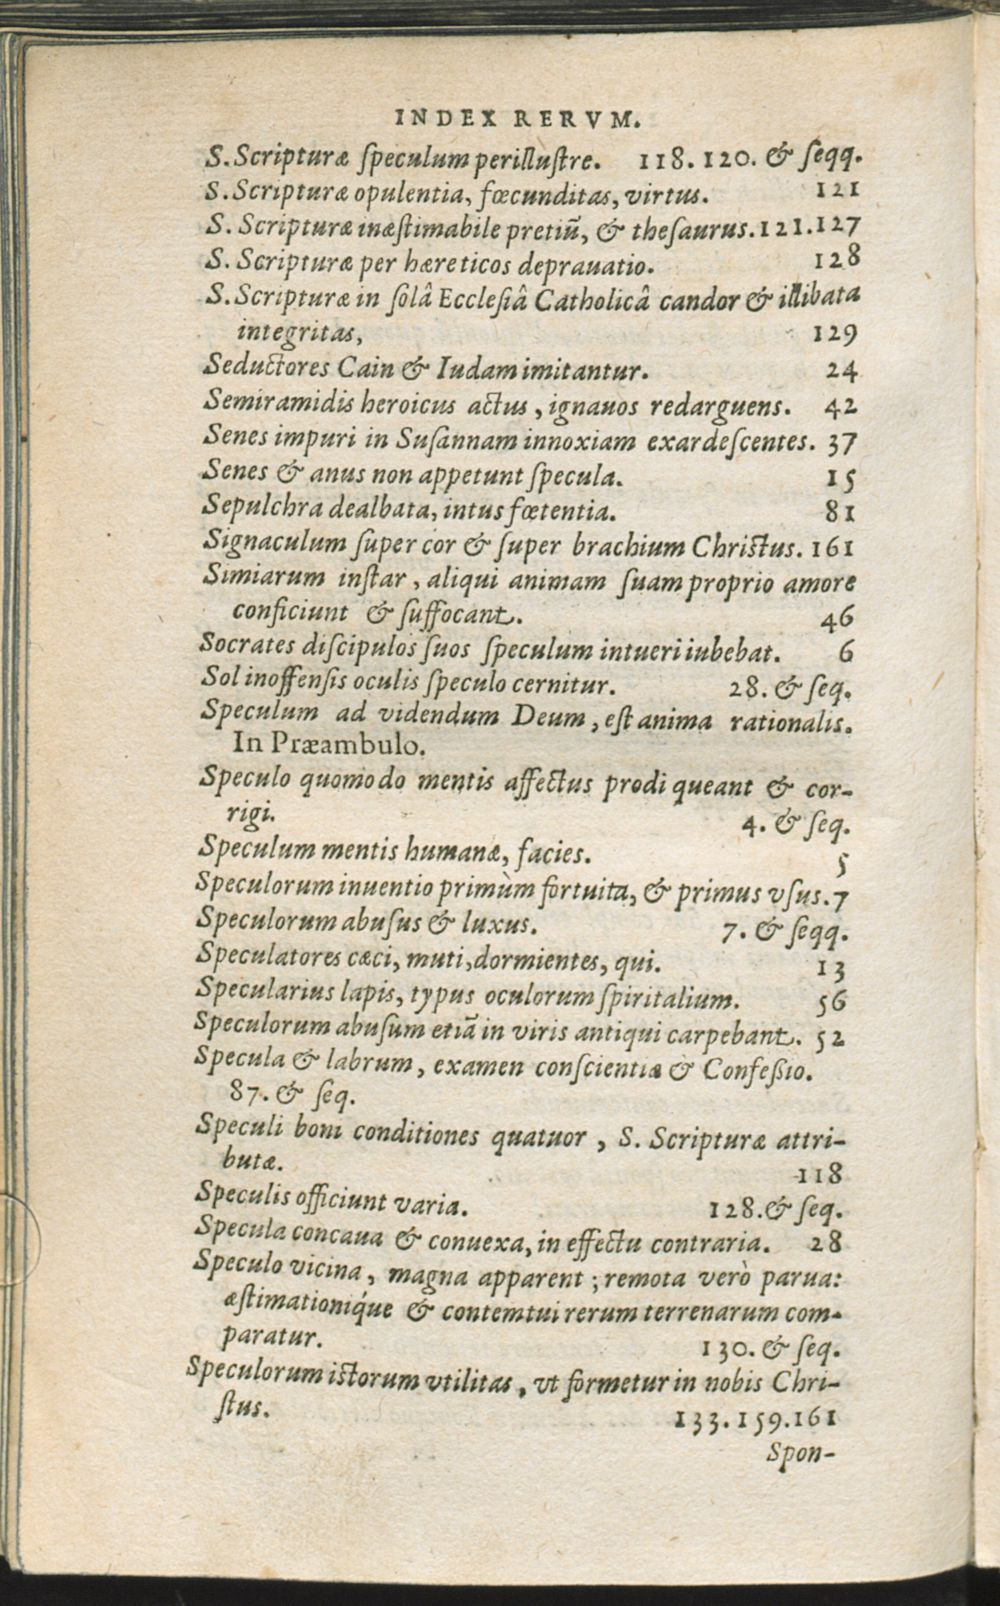 INDEX RERVM.
S. Scripturæ ſpeculum perilluſtre. 118. 120. & ſeqq.
S. Scripturæ opulentia, fœcunditas, virtus. 121
S. Scripturæ inæſtimabile pretiũ, & theſaurus. 121. 127
S. Scripturæ per hæreticos deprauatio. 128
S. Scripturæ in ſolâ Eccleſiâ Catholicâ candor & illibata
integritas, 129
Seductores Cain & Iudam imitantur. 24
Semiramidis heroicus actus, ignauos redarguens. 42
Senes impuri in Suſannam innoxiam exardeſcentes. 37
Senes & anus non appetunt ſpecula. 15
Sepulchra dealbata, intus fœtentia. 81
Signaculum ſuper cor & ſuper brachium Chriſtus. 161
Simiarum inſtar, aliqui animam ſuam proprio amore
conficiunt & ſuffocant. 46
Socrates diſcipulos ſuos ſpeculum intueri iubebat. 6
Sol inoffenſis oculis ſpeculo cernitur. 28. & ſeq.
Speculum ad videndum Deum, eſt anima rationalis.
In Præambulo.
Speculo quomodo mentis affectus prodi queant & cor-
rigi. 4. & ſeq.
Speculum mentis humanæ, facies. 5
Speculorum inuentio primùm fortuita, & primus vſus. 7
Speculorum abuſus & luxus. 7. & ſeqq.
Speculatores cæci, muti, dormientes, qui. 13
Specularius lapis, typus oculorum ſpiritalium. 56
Speculorum abuſum etiã in viris antiqui carpebant. 52
Specula & labrum, examen conſcientiæ & Confeßio.
87. & ſeq.
Speculi boni conditiones quatuor, S. Scripturæ attri-
butæ. 118
Speculis officiunt varia. 128. & ſeq.
Specula concaua & conuexa, in effectu contraria. 28
Speculo vicina, magna apparent; remota verò parua:
æſtimationiq́ue & contemtui rerum terrenarum com-
paratur. 130. & ſeq.
Speculorum iſtorum vtilitas, vt formetur in nobis Chri-
ſtus. 133. 159. 161
Spon-